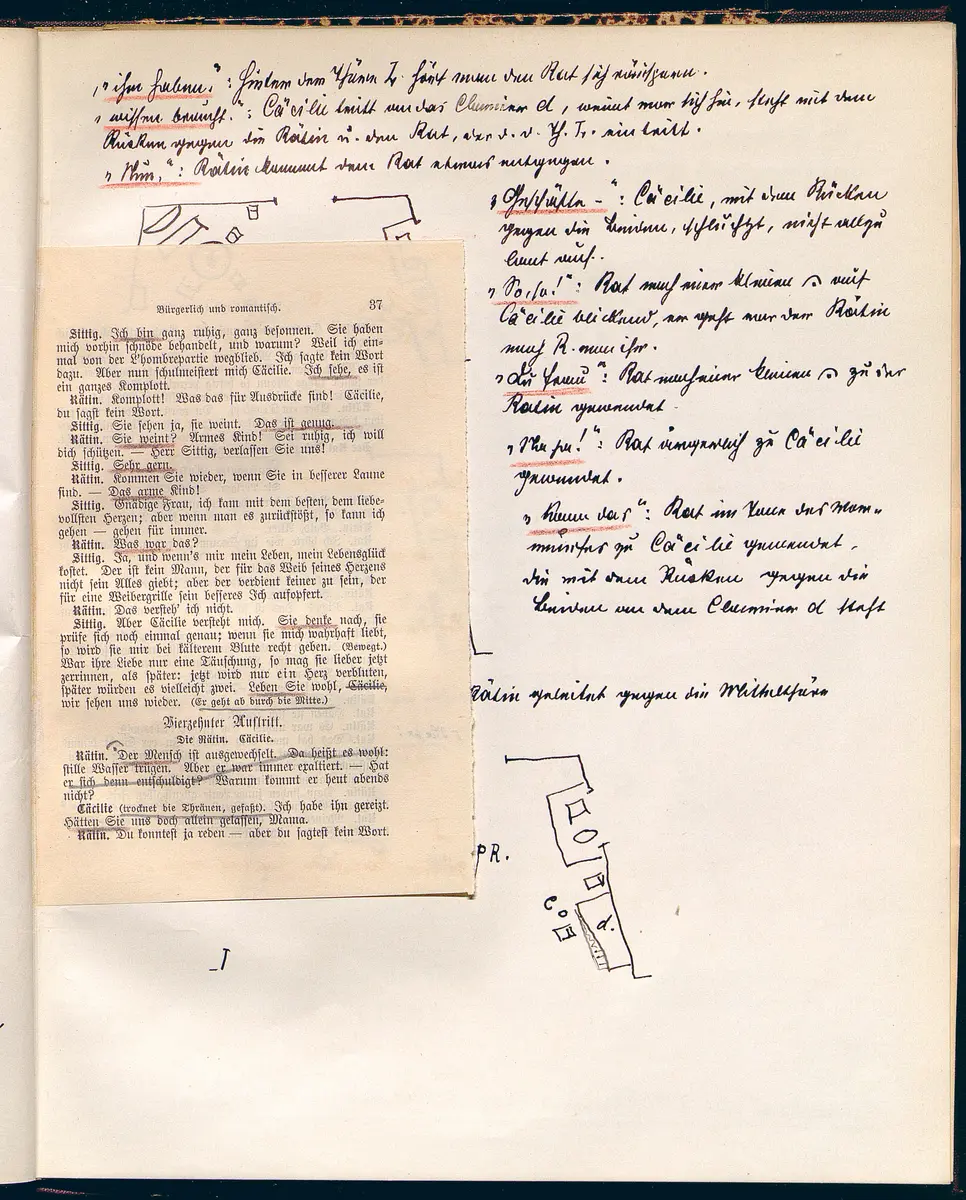 „ihn haben.“: Hinter der Thüre I. hört man den Rat sich räuspern.
„wissen braucht.“: Cäcilie tritt an das Clavier d, weint vor sich hin, steht mit dem
Rücken gegen die Rätin u. den Rat, der d. d. Th. I. eintritt.
„Nun,“: Rätin kommt dem Rat etwas entgegen.
„Geschäfte –“: Cäcilie, mit dem Rücken
gegen die Beiden, schluchzt, nicht allzu
laut auf.
„So, so!“: Rat nach einer kleinen auf
Cäcilie blickend, er geht vor der Rätin
nach R. von ihr.
„du Frau“: Rat nach einer kleinen zu der
Rätin gewendet.
„Na ja!“: Rat ärgerlich zu Cäcilie
gewendet.
„Kann das“: Rat im Tone des Vor-
wurfes zu Cäcilie gewendet,
die mit dem Rücken gegen die
Beiden an dem Clavier d steht
Rätin geleitet gegen die Mittelthüre
PR.
C
d.
I
Bürgerlich und romantisch. 37
Sittig. Ich bin ganz ruhig, ganz besonnen. Sie haben
mich vorhin schnöde behandelt, und warum? Weil ich ein-
mal von der L'hombrepartie wegblieb. Ich sagte kein Wort
dazu. Aber nun schulmeistert mich Cäcilie. Ich sehe, es ist
ein ganzes Komplott.
Rätin. Komplott! Was das für Ausdrücke sind! Cäcilie,
du sagst kein Wort.
Sittig. Sie sehen ja, sie weint. Das ist genug.
Rätin. Sie weint? Armes Kind! Sei ruhig, ich will
dich schützen. — Herr Sittig, verlassen Sie uns!
Sittig. Sehr gern.
Rätin. Kommen Sie wieder, wenn Sie in besserer Laune
sind. — Das arme Kind!
Sittig. Gnädige Frau, ich kam mit dem besten, dem liebe-
vollsten Herzen; aber wenn man es zurückstößt, so kann ich
gehen — gehen für immer.
Rätin. Was war das?
Sittig. Ja, und wenn's mir mein Leben, mein Lebensglück
kostet. Der ist kein Mann, der für das Weib seines Herzens
nicht sein Alles giebt; aber der verdient keiner zu sein, der
für eine Weibergrille sein besseres Ich aufopfert.
Rätin. Das versteh' ich nicht.
Sittig. Aber Cäcilie versteht mich. Sie denke nach, sie
prüfe sich noch einmal genau; wenn sie mich wahrhaft liebt,
so wird sie mir bei kälterem Blute recht geben. (Bewegt.)
War ihre Liebe nur eine Täuschung, so mag sie lieber jetzt
zerrinnen, als später: jetzt wird nur ein Herz verbluten,
später würden es vielleicht zwei. Leben Sie wohl, Cäcilie,
wir sehen uns wieder. (Er geht ab durch die Mitte.)
Vierzehnter Auftritt.
Die Rätin. Cäcilie.
Rätin. Der Mensch ist ausgewechselt. Da heißt es wohl:
stille Wasser trügen. Aber er war immer exaltiert. — Hat
er sich denn entschuldigt? Warum kommt er heut abends
nicht?
Cäcilie (trocknet die Thränen, gefaßt). Ich habe ihn gereizt.
Hätten Sie uns doch allein gelassen, Mama.
Rätin. Du konntest ja reden — aber du sagtest kein Wort.